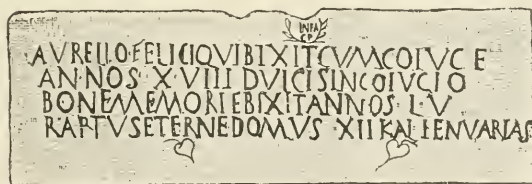 INPA
CP
AVRELIO·FELICIQVIBIXITCVMCOIVCE
ANNOS X·VIIII DVLCISINCOIVCIO
BONEMEMORIEBIXITANNOS·L·V
RAPTVSETERNEDOMVS·XIIKAL·IENVARIAS